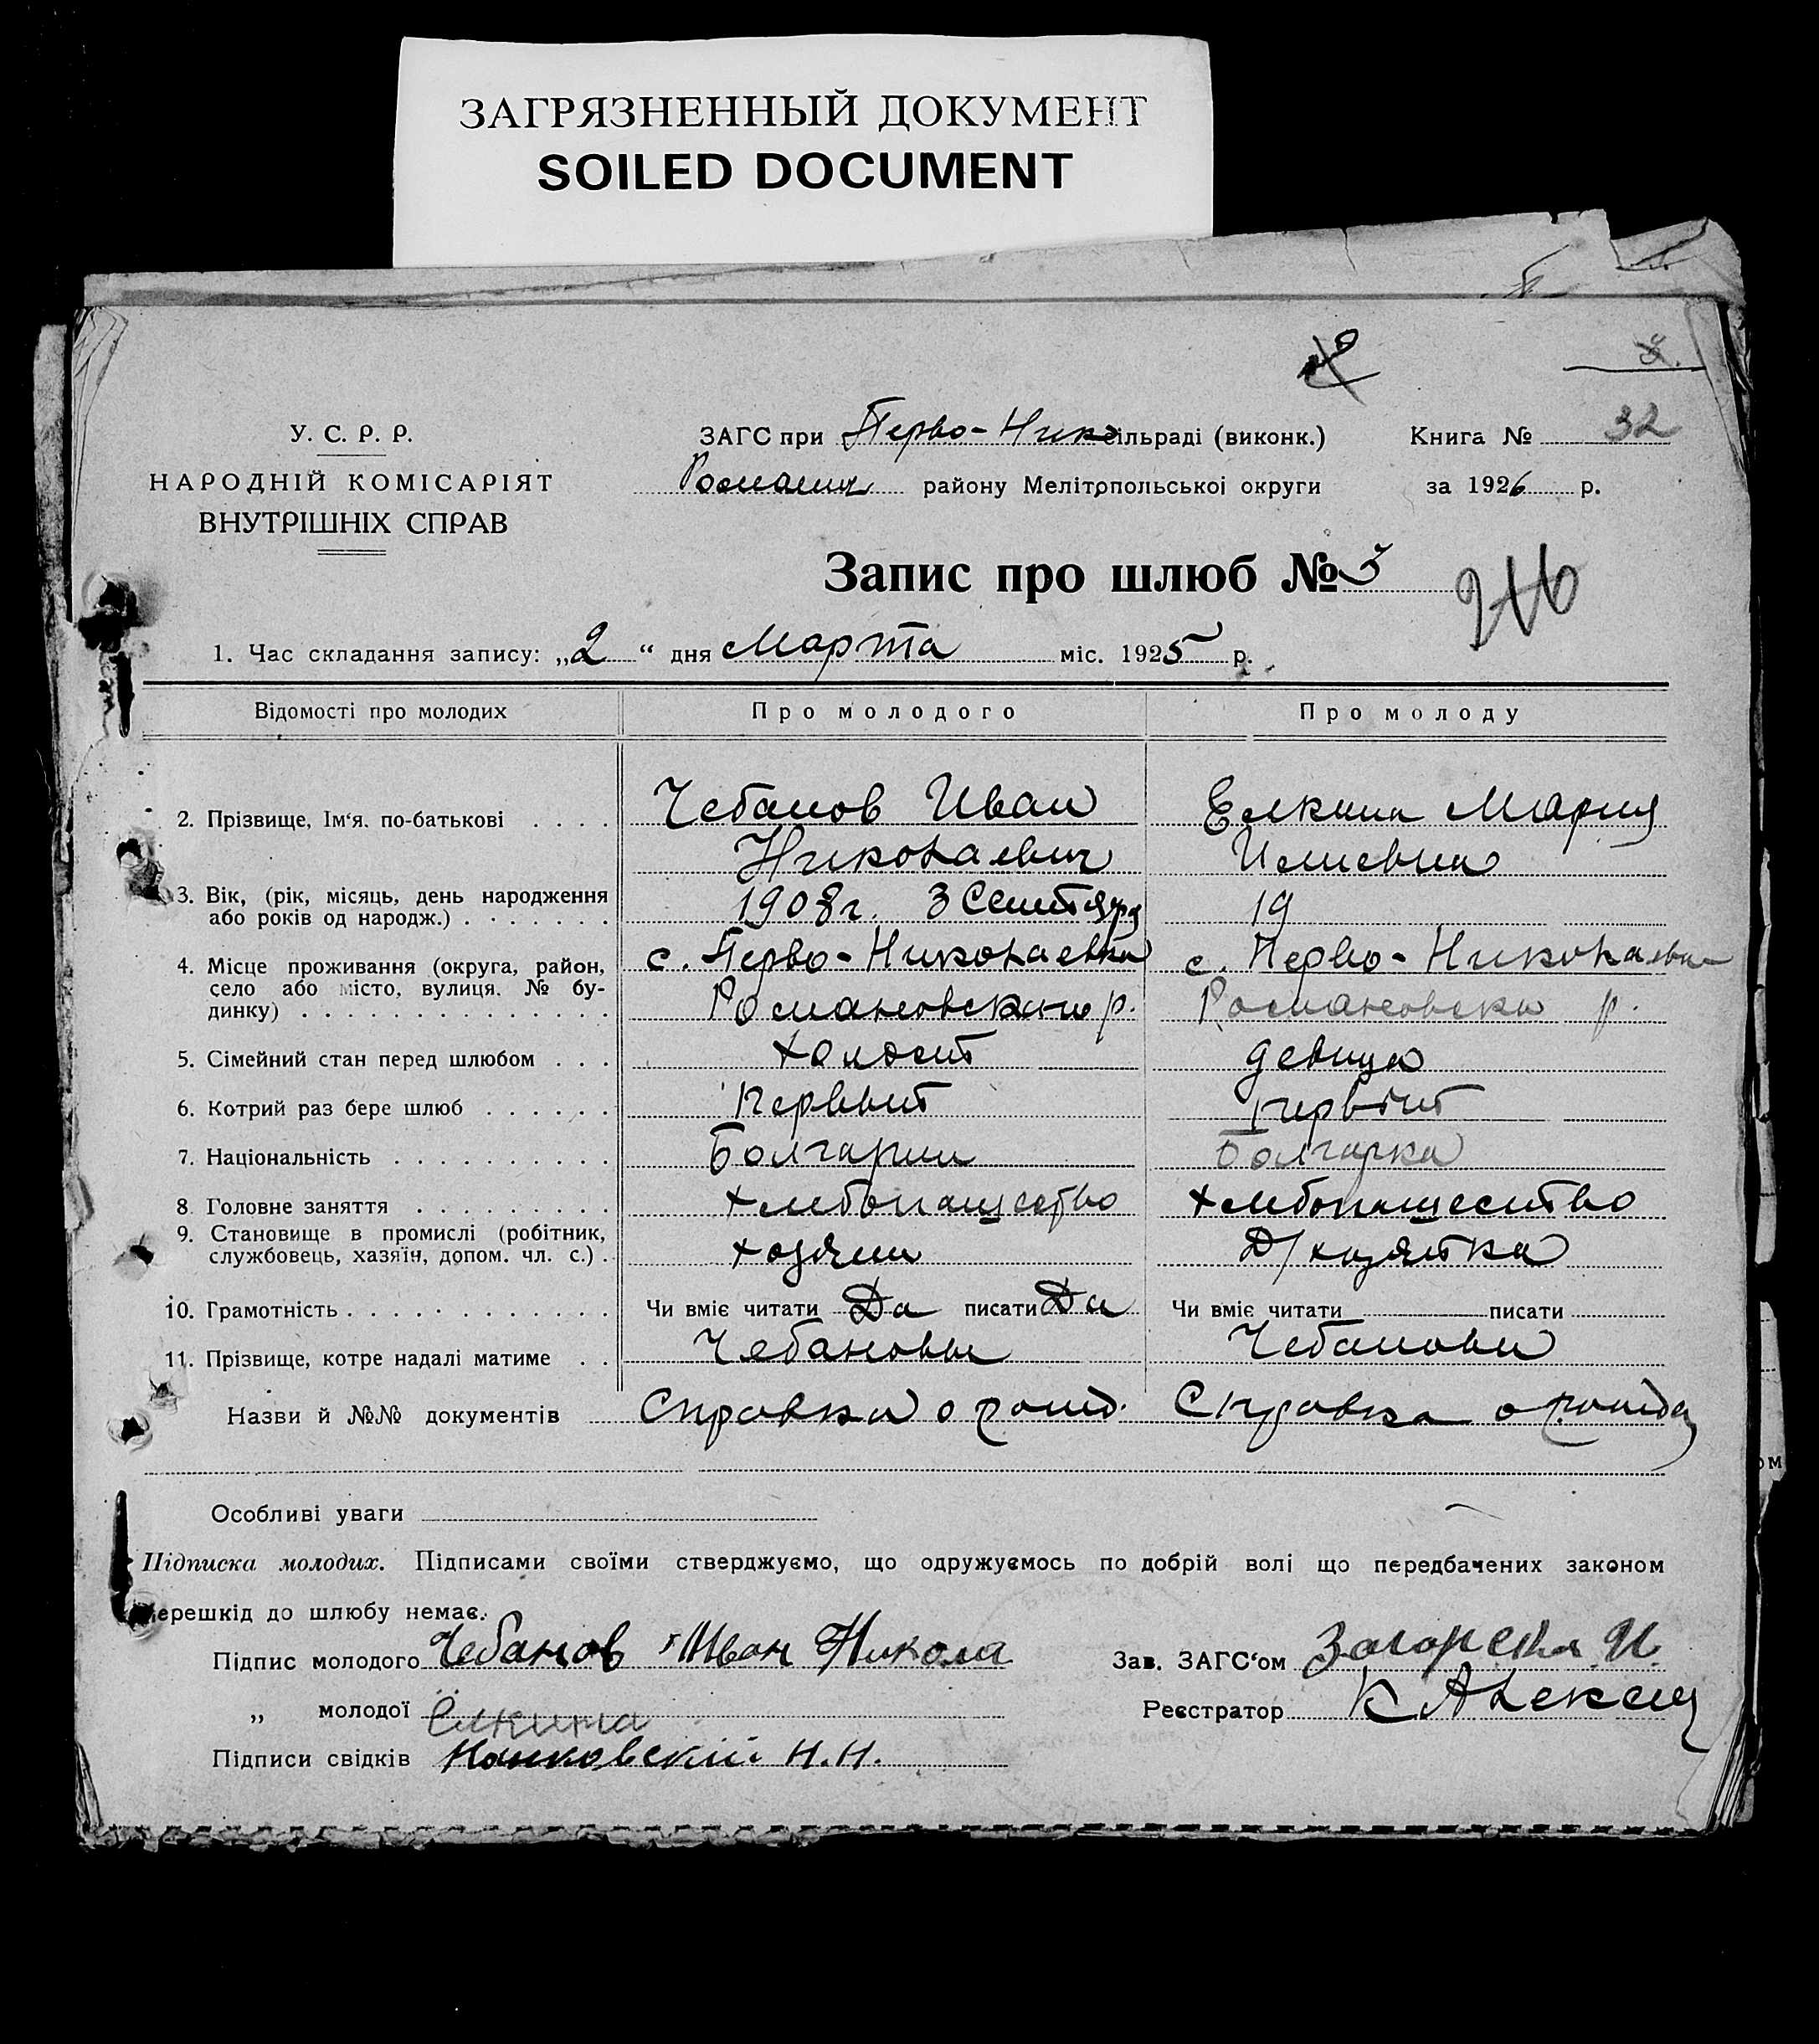 ЗАГРЯЗНЕННЫЙ ДОКУМЕНТ
SOILED DOCUMENT
8.
У. С. Р. Р.
НАРОДНІЙ КОМІСАРІЯТ
ВНУТРІШНІХ СПРАВ
ЗАГС при Перво-Ник сільраді (виконк.) Книга № 32
району Мелітопольської округи за 1926 р.
Запис про шлюб № 3
1. Час складання запису: „2“ дня Марта міс. 1925 р.
Відомості про молодих Про молодого Про молоду
2. Прізвище, Ім‘я. по-батькові Чебанов Иван Елкина Мария
Николаевич Илиевна
3. Вік, (рік, місяць, день народження
або років од народж.) 1908 г. 3 Сентября 19
4. Місце проживання (округа, район,
село або місто, вулиця. № будинку) с. Перво-Николаевка с. Перво-Николаевка
Романовского р. Романовско р.
5. Сімейний стан перед шлюбом холост девица
6. Котрий раз бере шлюб Первый первый
7. Національність Болгарин Болгарка
8 Головне заняття хлебопашество хлебопашество
9. Становище в промислі (робітник,
службовець, хазяїн, допом. чл. с.) хозяин Д/хозяйка
10. Грамотність Чи вміє читати Да писати Да Чи вміє читати писати
11. Прізвище, котре надалі матиме Чебановы Чебановы
Назви й №№ документів Справка о рожд. Справка о рожде
Особливі уваги
Підписка молодих. Підписами своїми стверджуємо, що одружуємось по добрій волі що передбачених законом
перешкід до шлюбу немає.
Підпис молодого Чебанов Иван Никола Зав. ЗАГС‘ом
„ молодої Ёлкина Реєстратор
Підписи свідків Н.Н.